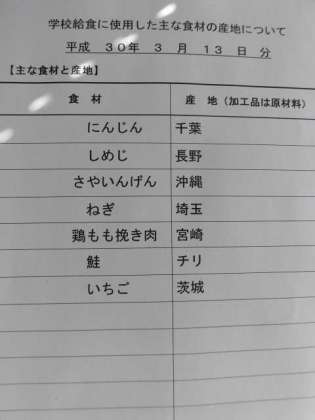 学校給食に使用した主な食材の産地について
平成 30年 3 月 13 日 分
【主な食材と産地】
食 材 産 地（加工品は原材料）
にんじん 千葉
しめじ 長野
さやいんげん 沖縄
ねぎ 埼玉
鶏もも挽き肉 宮崎
鮭 チリ
いちご 茨城